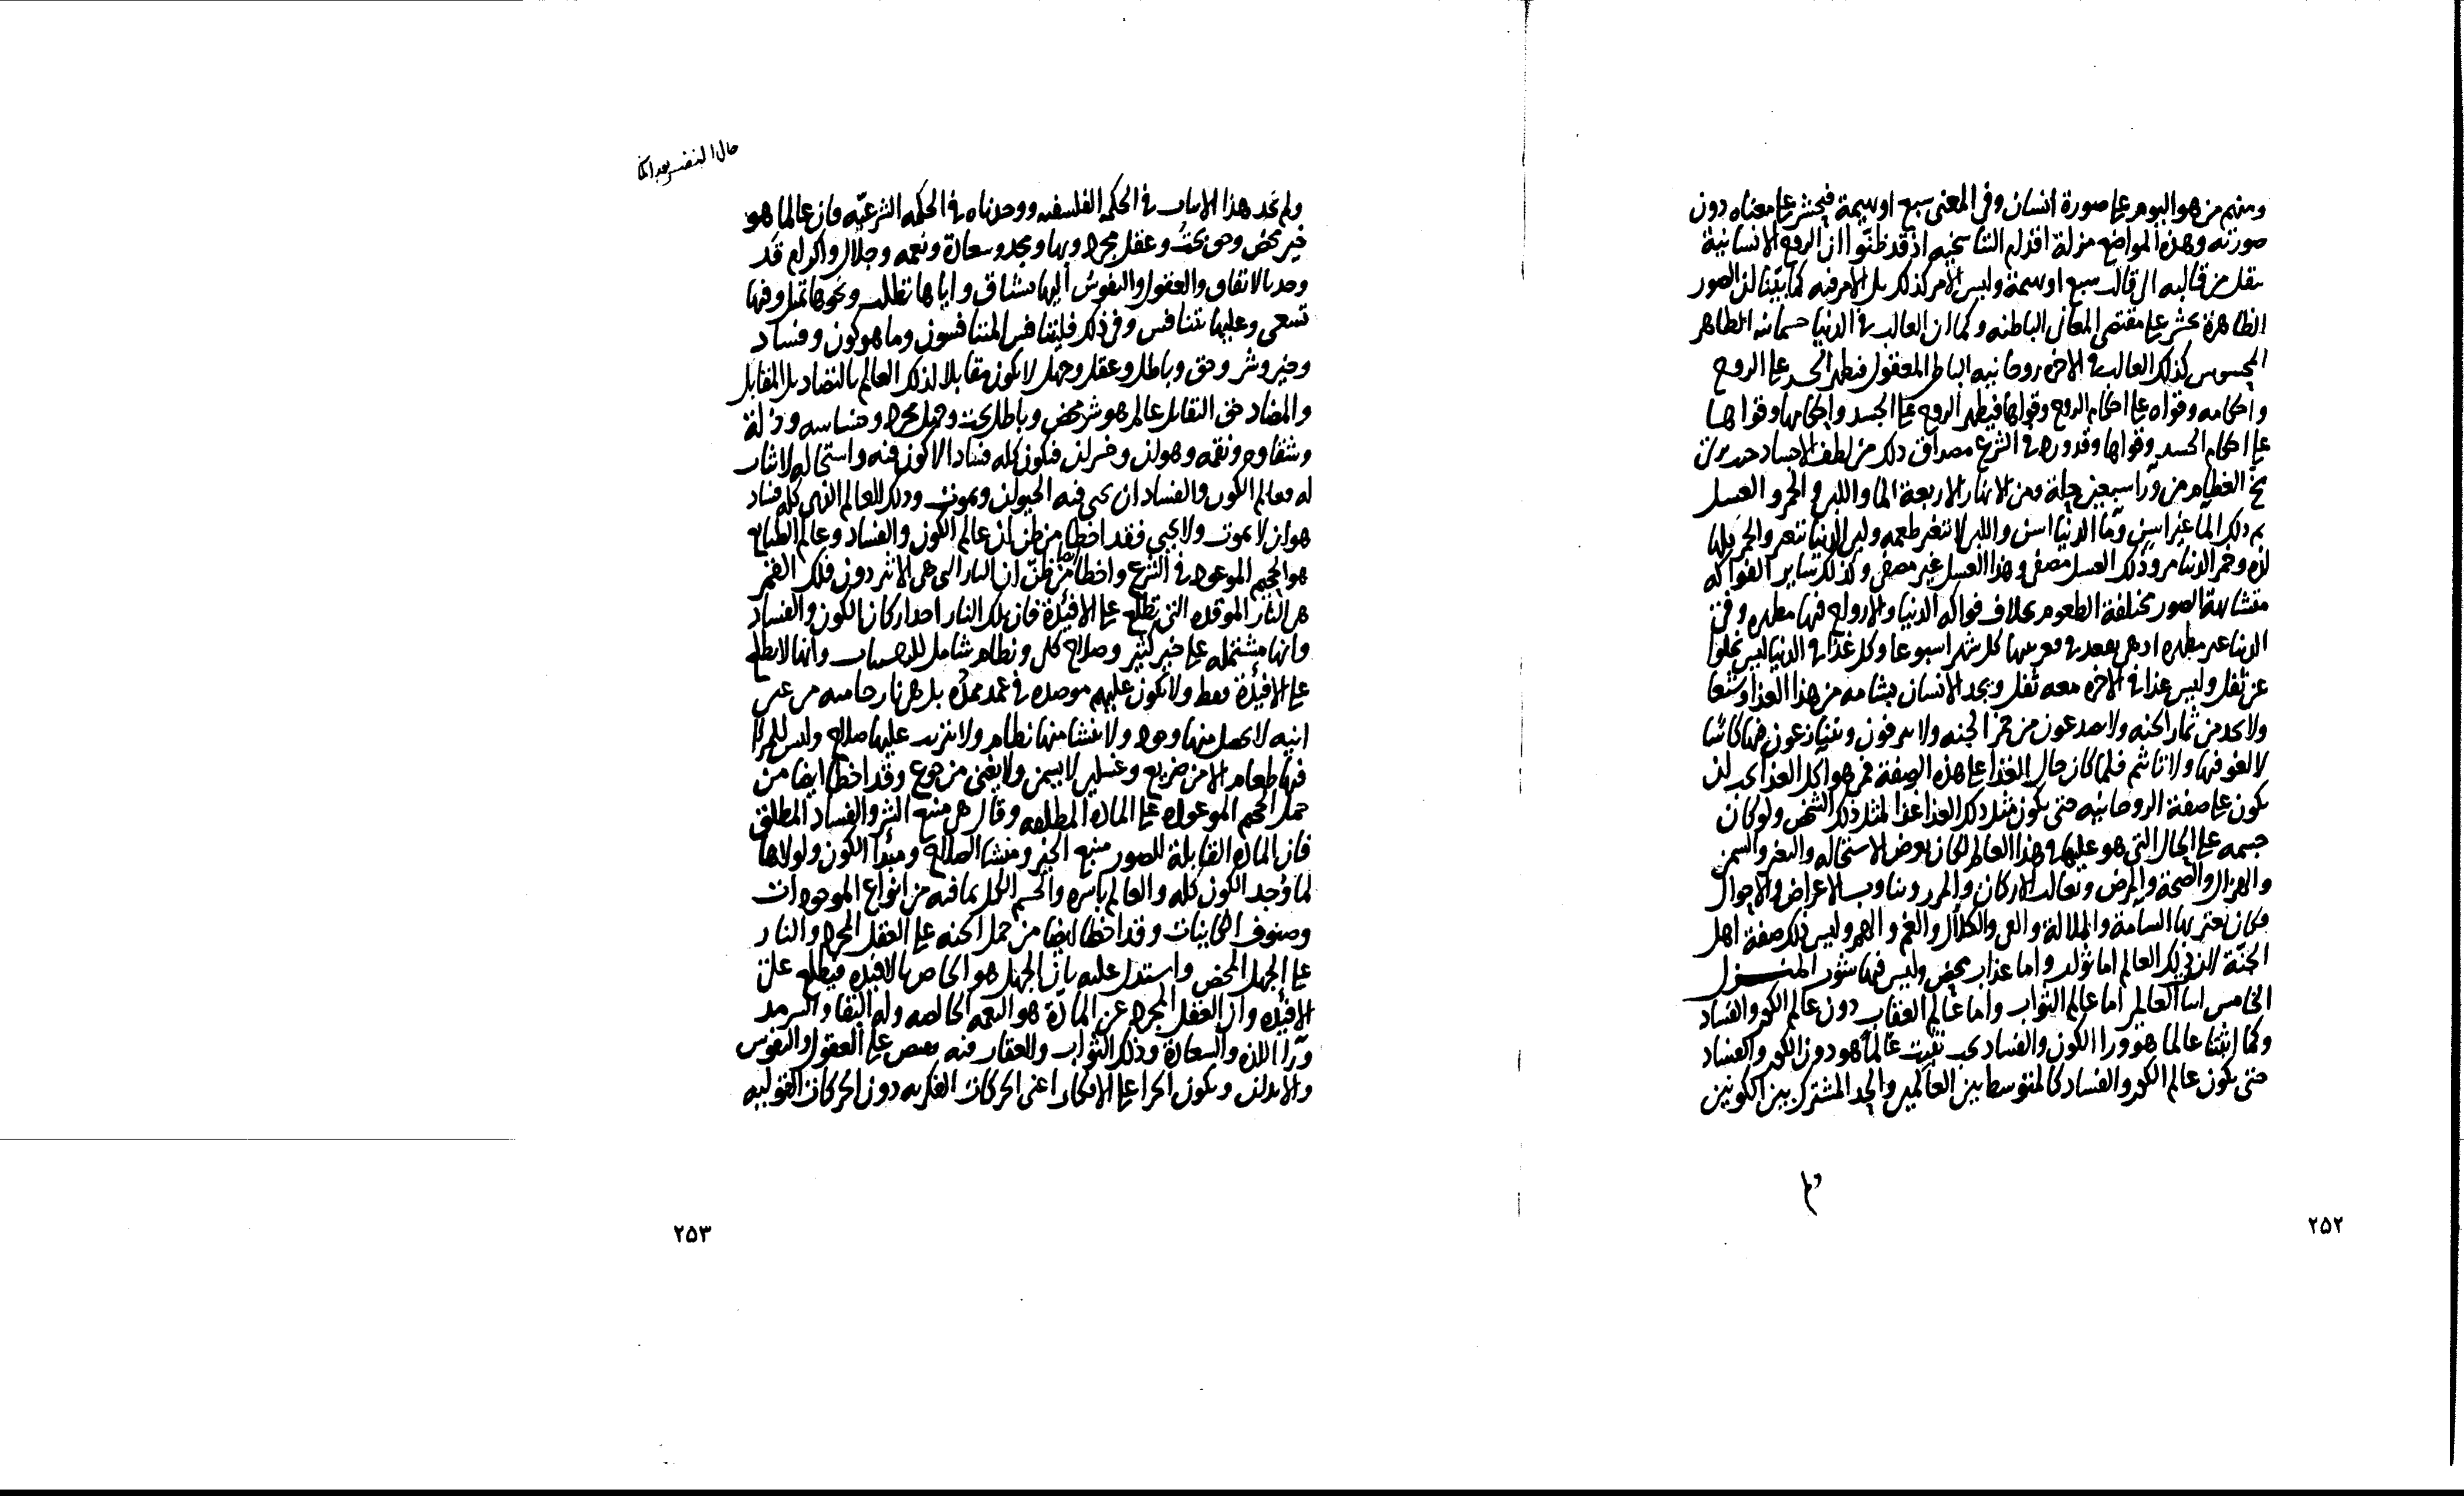 ومنهم من هو اليوم على صورة انسان وفي المعنى سبع او بهيمة فيحشر على معناه دون
صورته وهذه المواضع مزلة اقدام التناسخيه اذ قد ظنوا ان الروح الانسانية
ينقل من قالبه الى قالب سبع او بهيمة وليس الامر كذلك بل الامر فيه كما بينا ان الصور
الظاهرة تحشر على مقتضى المعاني الباطنه وكما ان الغالب في الدنيا جسمانيه الظاهر
المحسوس كذلك الغالب في الاخره روحانيه الباطن المعقول فيظهر الجسد على الروح
واحكامه وقواه على احكام الروح وقواها فيظهر الروح على الجسد واحكامها وقواها
على احكام الجسد وقواها وقد ورد في الشرع مصداق ذلك من لطف الاجساد حتى يرى
مخ العظام من ورا سبعين حلة ومن الانهار الاربعة الما واللبن والخمر والعسل
ثم ذلك الما غير اسن وما الدنيا اسن واللبن لا تتغير طعمه ولبن الدنيا تتغير والخمر كلها
لذه وخمر الدنيا مر وذلك العسل مصفى وهذا العسل غير مصفى وكذلك ساير الفواكه
متشابهة الصور مختلفة الطعوم بخلاف فواكه الدنيا والازواج فيها مطهره وفي
الدنيا غير مطهره اذ هي تقعد في كل شهر اسبوعا وكل غذا في الدنيا ليس يخلوا
عن ثفل وليس غذا في الاخره معه ثفل ويجد الانسان بشامه من هذا الغذا وشبعا
ولا يجد من ثمار الجنه ولا يصدعون من خمر الجنه ولا ينزفون ويتنازعون فيها كاسا
لا لغو فيها ولا تاثيم فلما كان حال الغذا على هذه الصفة فمن هو اكل الغذا يجب ان
يكون على صفة الروحانيه حتى يكون مثل ذلك الغذا غذا لمثل ذلك الشخص ولو كان
جسمه على الحال التي هو عليها في هذا العالم لكان يعرض الاستحاله والتغير والسمن
والهزال والصحة والمرض وتغالب الاركان وتناوب الاعراض والاحوال
فكان يعتريها السامة والملالة والعي والكلال والغم والهم وليس ذلك صفة اهل
الجنة اذ ذلك العالم اما ثواب واما عذاب محض وليس فيها شوب المنزل
الخامس العالم اما عالم الثواب واما عالم العقاب دون عالم الكون والفساد
وكما اثبتنا عالما هو ورا الكون والفساد يجب نثبت عالما هو دون الكون والفساد
حتى يكون عالم الكون والفساد كالمتوسط بين العالمين والحد المشترك بين الكونين
٢٥٢
حال النفس بعد
ولم نجد هذا الاثبات في الحكمه الفلسفيه ووجدناه في الحكمه الشرعيه فان عالما هو
خير محض وحق بحت وعقل مجرد وبها ومجد وسعادة ونعمه وجلال واكرام قد
وجد بالاتفاق والعقول والنفوس اليها تشتاق واياها تطلب ونحوها تميل وفيها
تسعى وعليها تتنافس وفي ذلك فليتنافس المتنافسون وما هو كون وفساد
وخير وشر وحق وباطل وعقل وجهل لا يكون مقابلا لذلك العالم بالتضاد بل المقابل
والمضاد حق التقابل عالم هو شر محض وباطل بحت وجهل مجرد وخساسه وذلة
وشقاوه ونقمه وهوان وخسران فيكون كله فسادا لا كون فيه واستحاله لا ثبات
له فعالم الكون والفساد ان يحيى فيه الحيوان ويموت وذلك العالم الذي كله فساد
هو ان لا يموت ولا يحيى فقد اخطا من ظن ان عالم الكون والفساد وعالم الطبايع
هو الجحيم الموعود في الشرع واخطا من ظن ان النار التي هي الاثير دون فلك القمر
هي النار الموقده التي تطلع على الافيدة فان تلك النار احد اركان الكون والفساد
وانها مشتمله على خير كثير وصلاح كلي ونظام شامل وانها لا تطلع
على الافيدة فقط ولا تكون عليهم موصده في عمد ممدده بل هي نار حاميه من عين
انيه لا يحصل منها وجود ولا ينشا منها نظام ولا يترتب عليها صلاح وليس
فيها طعام الا من ضريع وغسلين لا يسمن ولا يغني من جوع وقد اخطا ايضا من
حمل الجحيم الموعود على الماده المطلقه وقال هي منبع الشر والفساد المطلق
فان الماده القابلة للصور منبع الخير ومنشا الصلاح ومبدا الكون ولولاها
لما وجد الكون كله والعالم باسره والجسم الكل بما فيه من انواع الموجودات
وصنوف الكاينات وقد اخطا ايضا من حمل الجنه على العقل المجرد والنار
على الجهل المحض واستدل عليه بان الجهل هو الخاص بالافيده فيطلع على
الافيده وان العقل المجرد عن المادة هو النعمه الخالصه وله البقا والسرمد
ورا اللذه والسعادة وذلك الثواب والعقاب فيه يختص على العقول والنفوس
والابدان ويكون الجزا على الافكار اعني الحركات الفكريه دون الحركات القوليه
٢٥٣